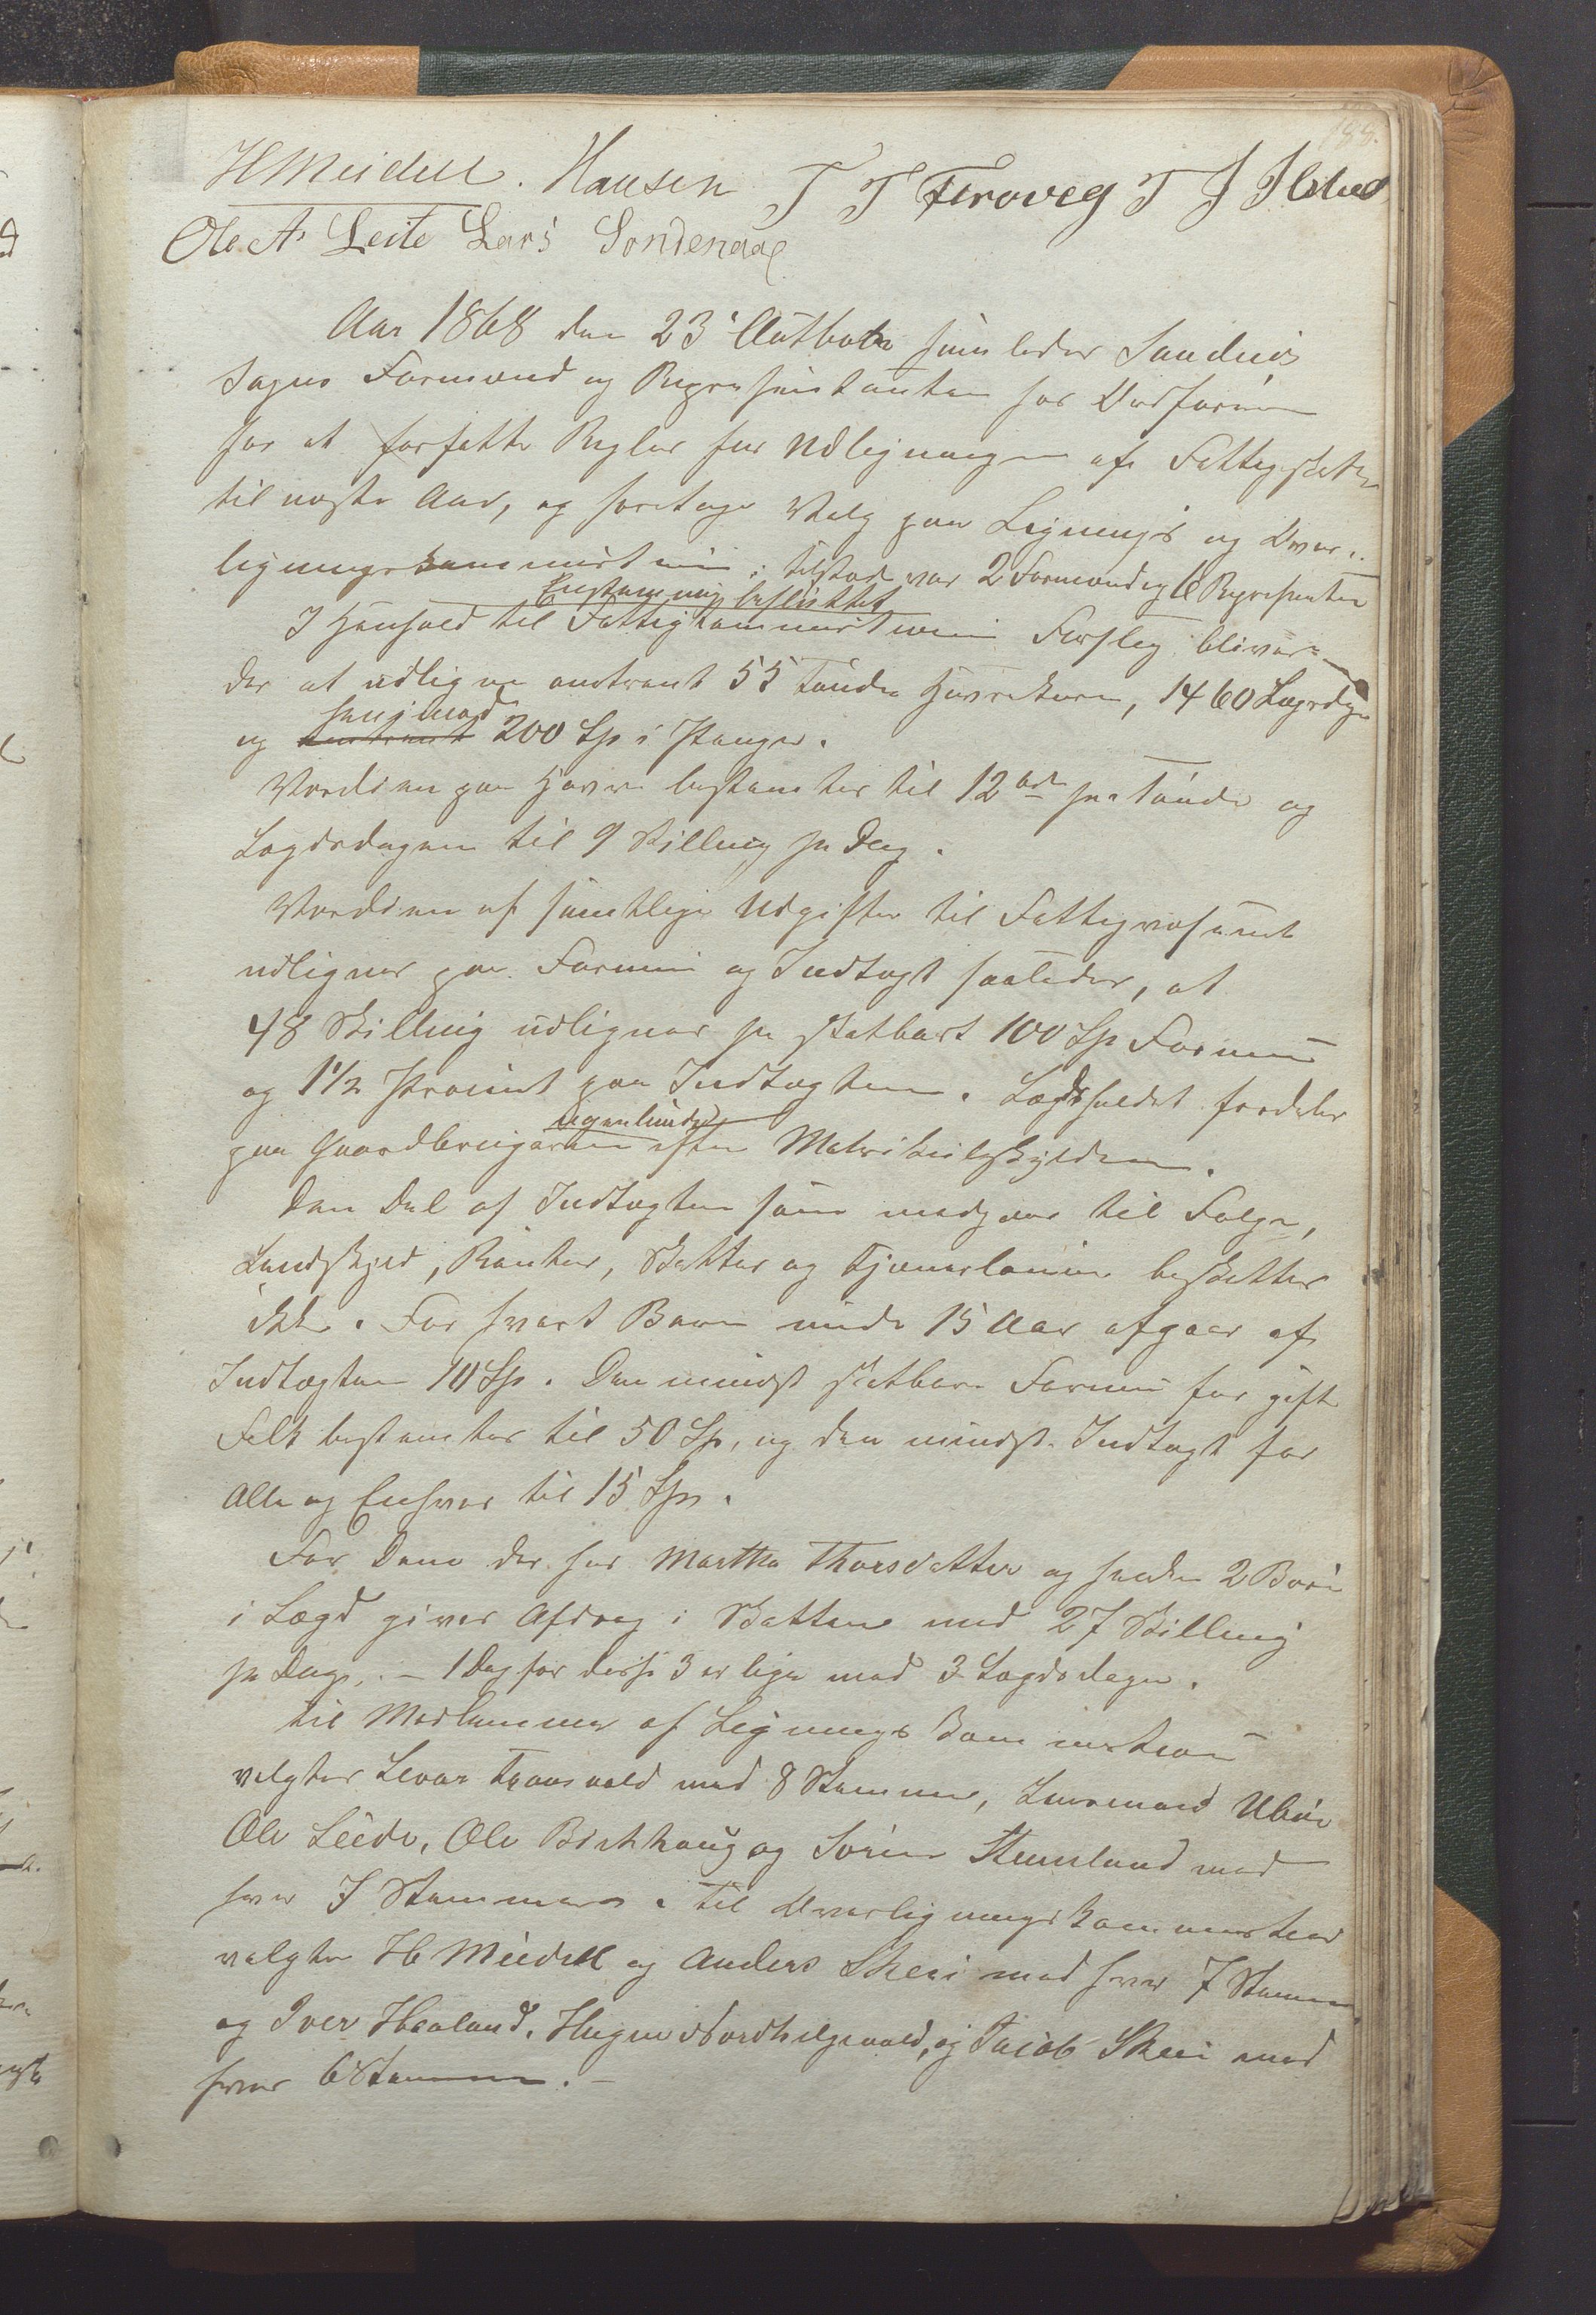 188.
H Meidell. Hansen T T Feroveg T J Ilstad
Ole A. Leite Lars Søndenaae
Aar 1868 den 23' Autbober samledes Sandeids
Sogns Formænd og Repræsentanter for Vedforeien
for at forfatte Regler for Udligningen af Fattigskatten
til næste Aar, og foretage Valg paa Lignings og Over-
ligningskommissionen; tilstede var 2 Formænd og 6 Repræsentan
Enstemmig besluttet
I Henhold til Fattigkommissionens Forslag bliver
der at udligne omtrent 55 Tønder Havrekorn, 1460 Lægdsdage
henimod
og omtrent 200 Sp i Penger.
Værdien paa Havre bestemtes til 12 ort pr Tønde og
Lægdsdagen til 9 Skilling pr Dag.
Værdien af samtlige Udgifter til Fattigvæsenet
udlignes paa Formue og Indtægt saaledes, at
48 Skilling udlignes pr skatbart 100 Sp Formue
og 1 1/2 Procent paa Indtægten. Lægdsholdet fordeles
ligeledes
paa Gaardbrugerne efter Matrikulskylden.
Den Del af Indtægten som medgaar til Følge,
Landskyld, Renter, Skatter og Tjenerlønne beskattes
ikke. For hvert Barn under 15 Aar afgaar af
Indtægten 10 Sp. Den mindst skatbare Formue for gifte
Folk bestemtes til 50 Sp, og den mindste Indtægt for
Alle og Enhver til 15 Sp.
For Dem der har Martha Thorsdatter og hendes 2 Børn
i Lægd gives Afdrag i Skatten med 27 Skilling
pr Dag. – 1 Dag for disse 3 er lige med 3 Lægdsdage.
Til Medlemmer af Lignings Kommission
valgtes Levar Traasvold med 8 Stemmer, Lensmand Ubøe
Ole Leede, Ole Birkhaug og Sørine Stumland med
hver 7 Stemmer. Til Overligningskommission
valgtes H Meidell og Anders Skeie med hver 7 Stemmer
og Iver Haaland, Helgeen Nordhelgevold, og Jacob Skeie med
hver 6 Stemmer. –